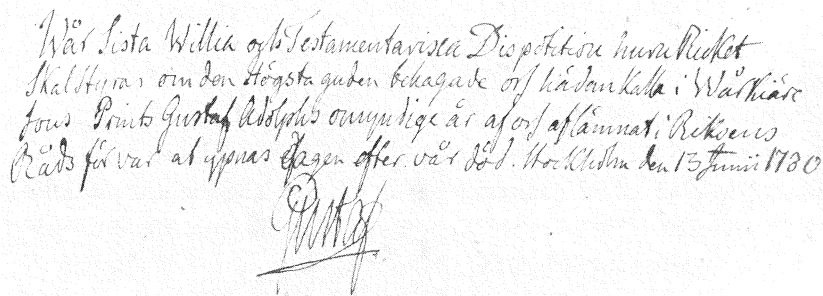 Wår Sista Willia och Testamentarisca Dispotition huru Ricket
Skal Styras om den Högsta guden behagade oss hädan kalla i Wår kiäre
Sons Prints Gustaf Adolphs omyndige år af oss aflämnat i Riksens
Råds förvar at yppnas dagen efter vår död. Stockholm den 13 Junii 1780
Gustaf